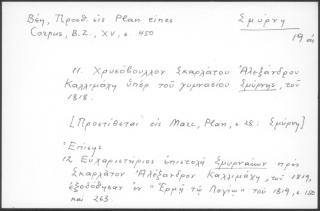 Βέη, Προσθ. εἰς Plan eines
Corpus, B.Z., XV, σ. 450
Σμύρνη
19 αἰ
11. Χρυσόβουλλον Σκαρλάτου Ἀλεξάνδρου
Καλλιμάχη ὑπὲρ τοῦ γυμνασίου Σμύρνης, τοῦ
1818.
[Προστίθεται εἰς Marc, Plan, σ. 28: Σμύρνη]
Ἐπίσης
12 Εὐχαριστήριος ἐπιστολὴ Σμυρναίων πρὸς
Σκαρλάτον Ἀλεξάνδρου Καλλιμάχη, τοῦ 1819,
ἐξεδόθησαν ἐν "Ἑρμῇ τῷ Λογίῳ" τοῦ 1819, σ. 150
καὶ 263.